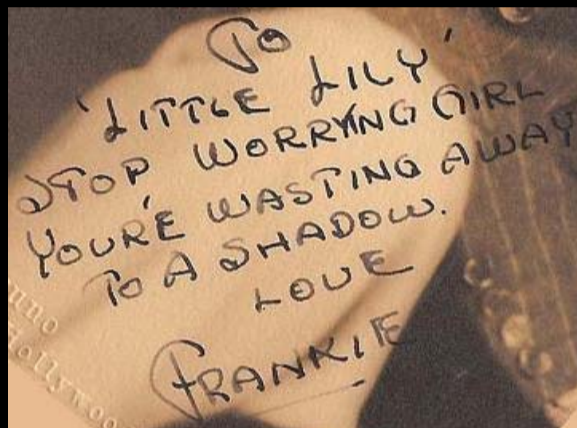 To
'LITTLE LILY'
STOP WORRYING GIRL
YOU'RE WASTING AWAY
TO A SHADOW.
LOVE
FRANKIE